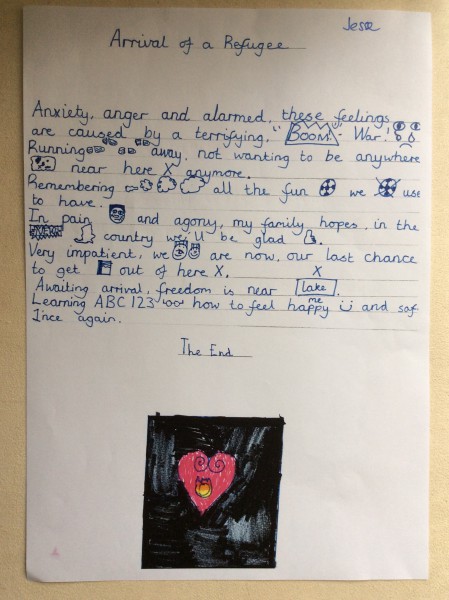 Jesse
Arrival of a Refugee
Anxiety, anger and alarmed, these feelings
are caused by a terrifying, "BOOM" War!
Running away, not wanting to be anywhere
near here X anymore.
Remembering all the fun we use
to have.
In pain and agony, my family hopes, in the
country we'll be glad.
Very impatient, we are now, our last chance
to get out of here X. X
Awaiting arrival, freedom is near lake.
Learning ABC 123 how to feel happy me and saf
1nce again.
The End